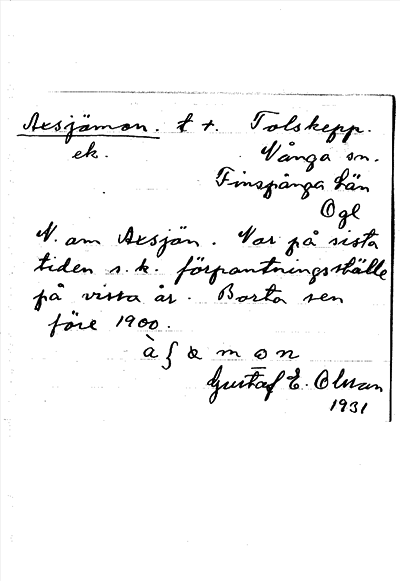 Axsjömon. t +. Tolskepp.
ek. Vånga sn.
Finspånga län
Ögl
N. om Axsjön. Var på sista
tiden s.k. förpantningsställe
på vissa år. Borta sen
före 1900.
Gustaf E. Olsson
1931